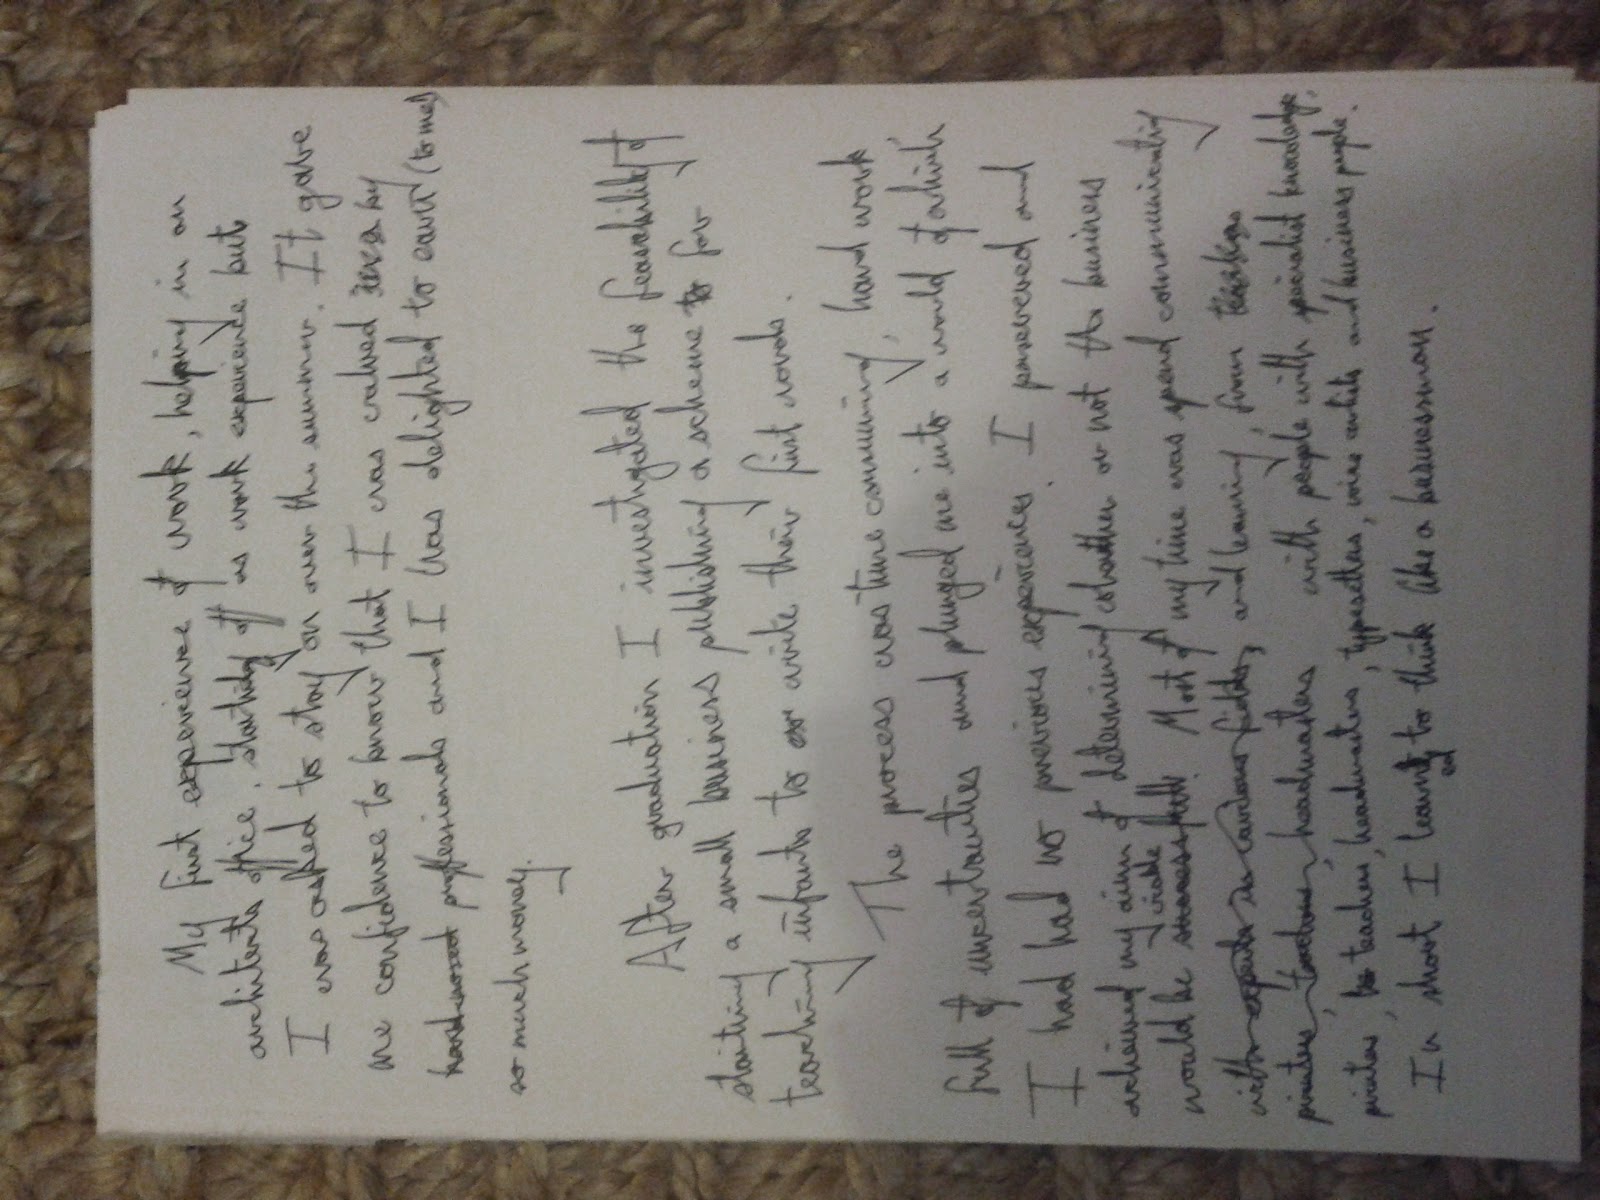 My first experience of work, helping in an
architects office. Starting off as work experience but
I was asked to stay on over the summer. It gave
me confidence to know that I was valued by
professionals and I was delighted to earn (to me)
so much money.
After graduation I investigated the feasability of
starting a small business publishing a scheme for
teaching infants to write their first words.
The process was time consuming, hard work
full of uncertainties and plunged me into a world of which
I had had no previous experience. I persevered and
achieved my aim of determining whether or not the business
would be viable. Most of my time was spend communicating
and learning, from
with people with specialist knowledge,
printers, teachers, headmasters, typesetters, voice artists and business people.
In short I learned to think like a businessman.